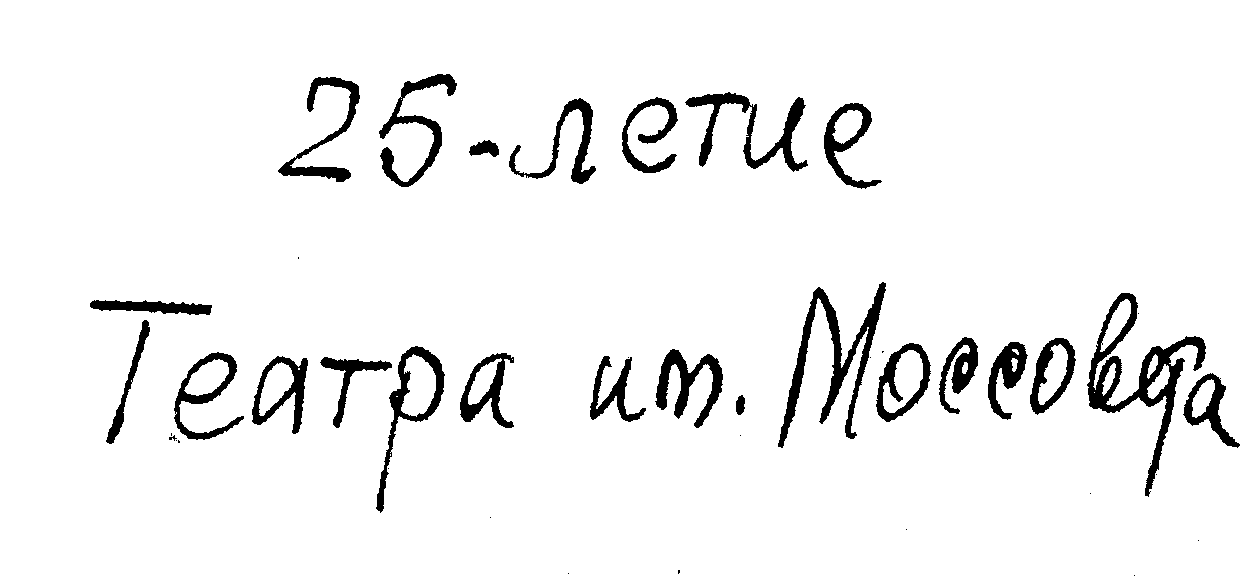 25-летие
Театра им. Моссовета